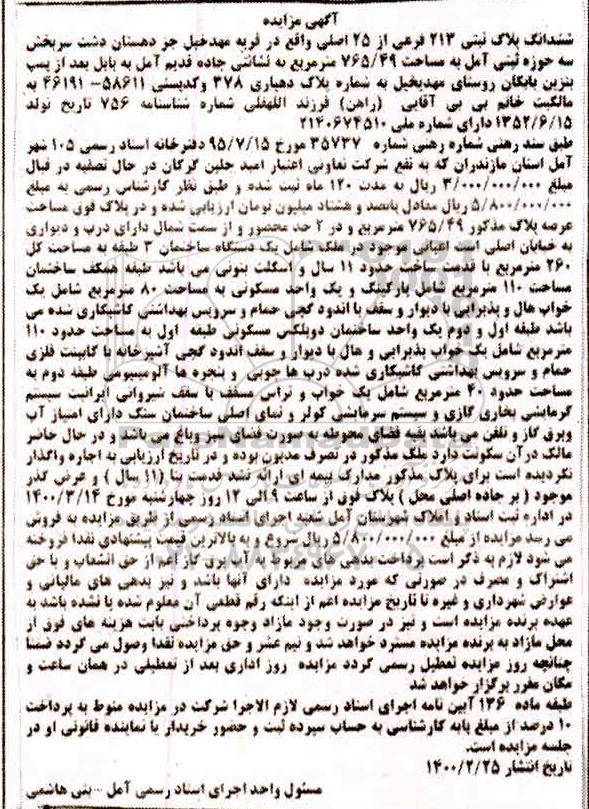 آگهی مزایده
ششدانگ پلاک ثبتی ۲۱۳ فرعی از ۲۵ اصلی واقع در قریه مهدخیل جز دهستان دشت سربخش
سه حوزه ثبتی آمل به مساحت ۷۶۵/۴۹ مترمربع به نشانی جاده قدیم آمل به بابل بعد از پمپ
بنزین بایگان روستای مهدیخیل به شماره پلاک دهیاری ۳۷۸ وکدپستی ۵۸۶۱۱-۴۶۱۹۱ به
مالکیت خانم بی بی آقایی (راهن) فرزند اللهقلی شماره شناسنامه ۷۵۶ تاریخ تولد
۱۳۵۲/۶/۱۵ دارای شماره ملی ۲۱۴۰۶۷۴۵۱۰
طبق سند رهنی شماره رهنی شماره ۳۵۷۳۷ مورخ ۹۵/۷/۱۵ دفترخانه اسناد رسمی ۱۰۵ شهر
آمل استان مازندران که به نفع شرکت تعاونی اعتبار امید جلین گرگان در حال تصفیه در قبال
مبلغ ۳/۰۰۰/۰۰۰/۰۰۰ ریال به مدت ۱۲۰ ماه ثبت شده و طبق نظر کارشناس رسمی به مبلغ
۵/۸۰۰/۰۰۰/۰۰۰ ریال معادل پانصد و هشتاد میلیون تومان ارزیابی شده و در پلاک فوق مساحت
عرصه پلاک مذکور ۷۶۵/۴۹ مترمربع و در ۲ حد محصور و از سمت شمال دارای درب و دیواری
به خیابان اصلی است اعیانی موجود در ملک شامل یک دستگاه ساختمان ۳ طبقه به مساحت کل
۲۶۰ مترمربع با قدمت ساخت حدود ۱۱ سال و اسکلت بتونی می باشد طبقه همکف ساختمان
مساحت ۱۱۰ مترمربع شامل پارکینگ و یک واحد مسکونی به مساحت ۸۰ مترمربع شامل یک
خواب هال و پذیرایی با دیوار و سقف با اندود گچی حمام و سرویس بهداشتی کاشیکاری شده می
باشد طبقه اول و دوم یک واحد ساختمان دوبلکس مسکونی طبقه اول به مساحت حدود ۱۱۰
مترمربع شامل یک خواب پذیرایی و هال با دیوار و سقف اندود گچی آشپزخانه با کابینت فلزی
حمام و سرویس بهداشتی کاشیکاری شده درب ها چوبی و پنجره ها آلومینیومی طبقه دوم به
مساحت حدود ۴۰ مترمربع شامل یک خواب و تراس مسقف با سقف شیروانی ایرانیت سیستم
گرمایشی بخاری گازی و سیستم سرمایشی کولر و نمای اصلی ساختمان سنگ دارای امتیاز آب
وبرق گاز و تلفن می باشد بقیه فضای محوطه به صورت فضای سبز وباغ می باشد و در حال حاضر
مالک در آن سکونت دارد ملک مذکور در تصرف مدیون بوده و در تاریخ ارزیابی به اجاره واگذار
نگردیده است برای پلاک مذکور مدارک بیمه ای ارائه نشد قدمت بنا (۱۱ سال ) و عرض گذر
موجود ( بر جاده اصلی محل ) پلاک فوق از ساعت ۹ الی ۱۲ روز چهارشنبه مورخ ۱۴۰۰/۳/۱۴
در اداره ثبت اسناد و املاک شهرستان آمل شعبه اجرای اسناد رسمی از طریق مزایده به فروش
می رسد مزایده از مبلغ ۵/۸۰۰/۰۰۰/۰۰۰ ریال شروع و به بالاترین قیمت پیشنهادی نقدا فروخته
می شود لازم به ذکر است پرداخت بدهی های مربوط به آب برق گاز اعم از حق انشعاب و یا حق
اشتراک و مصرف در صورتی که مورد مزایده دارای آنها باشد و نیز بدهی های مالیاتی و
عوارض شهرداری و غیره تا تاریخ مزایده اعم از اینکه رقم قطعی آن معلوم شده یا نشده باشد به
عهده برنده مزایده است و نیز در صورت وجود مازاد وجوه پرداختی بابت هزینه های فوق از
محل مازاد به برنده مزایده مسترد خواهد شد و نیم عشر و حق مزایده نقدا وصول می گردد ضمنا
چنانچه روز مزایده تعطیل رسمی گردد مزایده روز اداری بعد از تعطیلی در همان ساعت و
مکان مقرر برگزار خواهد شد
طبقه ماده ۱۳۶ آیین نامه اجرای اسناد رسمی لازم الاجرا شرکت در مزایده منوط به پرداخت
۱۰ درصد از مبلغ پایه کارشناسی به حساب سپرده ثبت و حضور خریدار یا نماینده قانونی او در
جلسه مزایده است.
تاریخ انتشار ۱۴۰۰/۲/۲۵
مسئول واحد اجرای اسناد رسمی آمل - بنی هاشمی